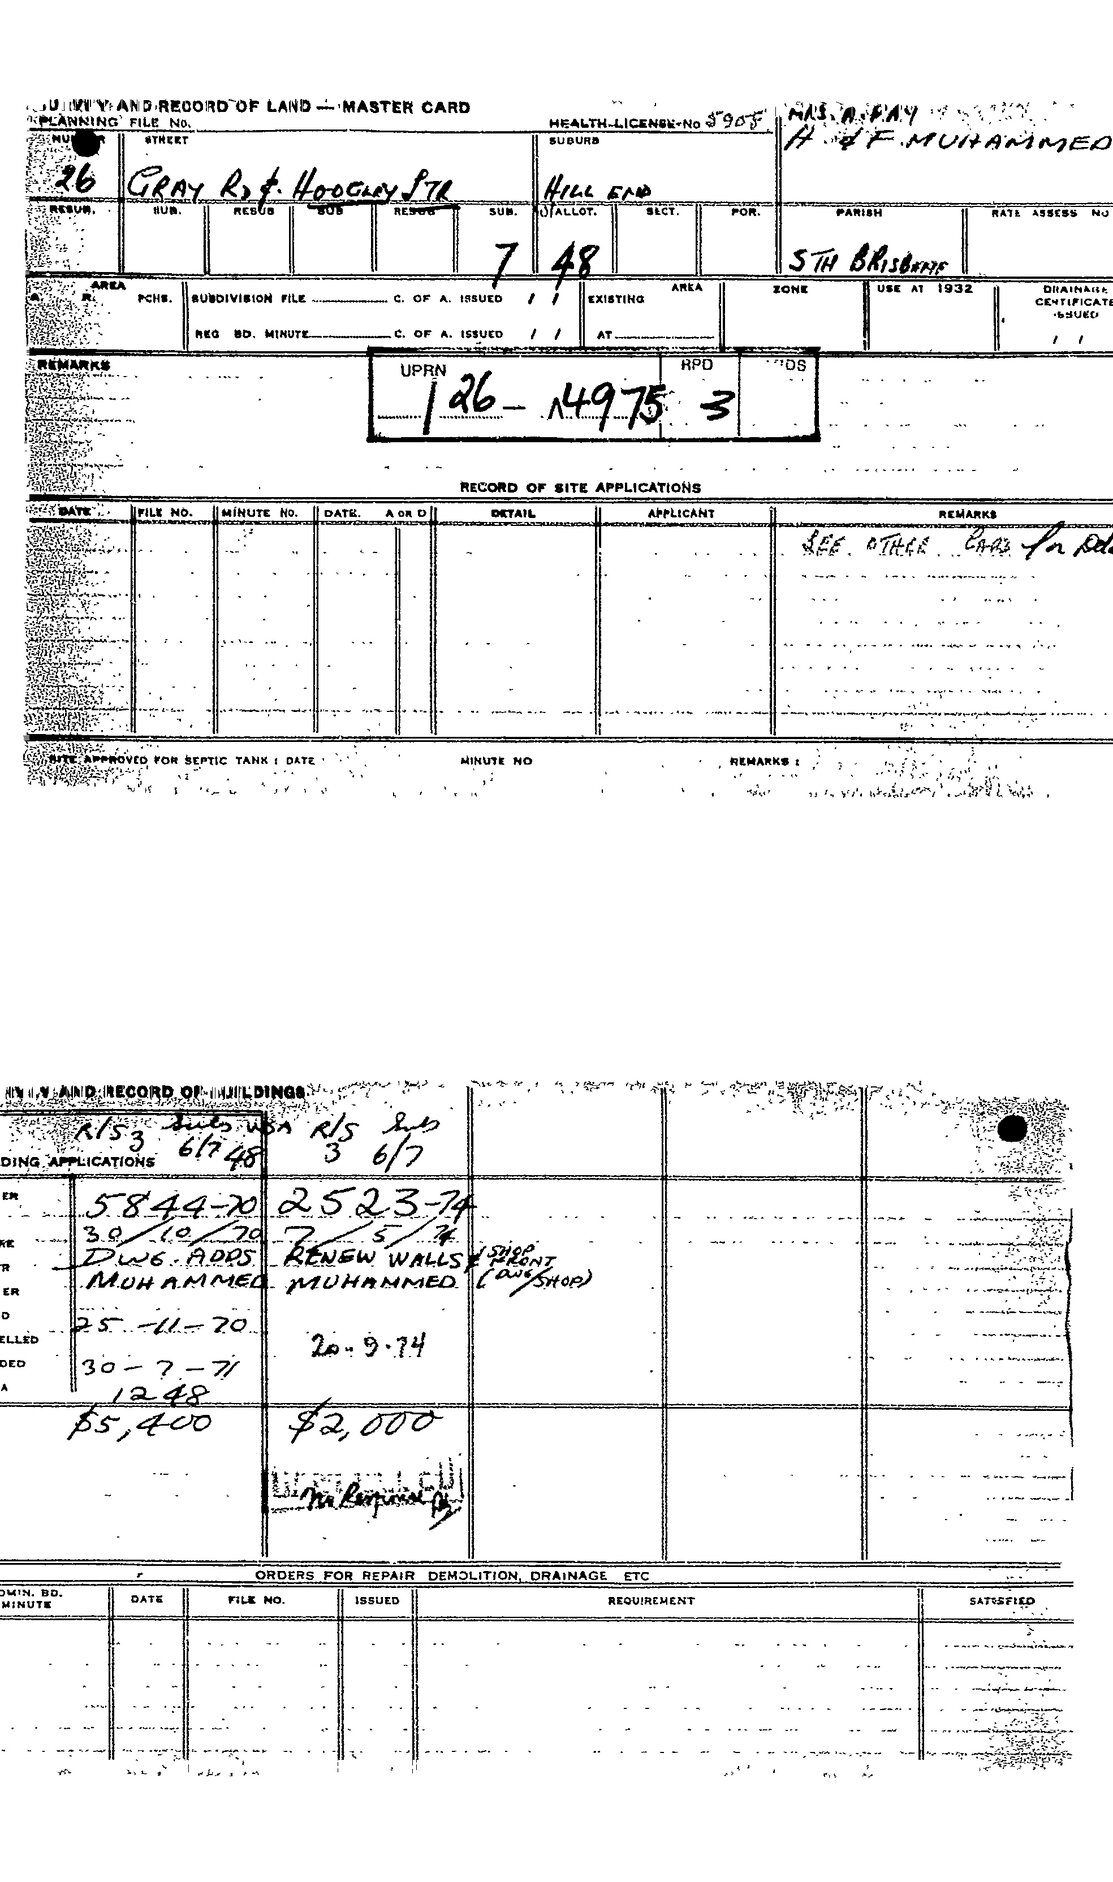 AND RECORD OF LAND — MASTER CARD
PLANNING FILE No. HEALTH LICENSE No 5905 MRS. A. FAY
NUMBER STREET SUBURB H. & F. MUHAMMED
26 GRAY RD & HOOGLEY STR HILL END
RESUB. SUB. RESUB SUB RESUB SUB. ALLOT. SECT. POR. PARISH RATE ASSESS NO
7 48 STH BRISBANE
AREA
A. R. PCHS. SUBDIVISION FILE C. OF A. ISSUED / / EXISTING AREA ZONE USE AT 1932 DRAINAGE CERTIFICATE ISSUED
REG BD. MINUTE C. OF A. ISSUED / / AT / /
REMARKS
UPRN RPD
1 26 - 14975 3
RECORD OF SITE APPLICATIONS
DATE FILE NO. MINUTE No. DATE. A OR D DETAIL APPLICANT REMARKS
SEE OTHER CARD for
SITE APPROVED FOR SEPTIC TANK : DATE MINUTE NO REMARKS :
AND RECORD OF BUILDINGS
R/S 3 Subs 6/7 48 R/S 3 Sub 6/7
DING APPLICATIONS
ER 5844-70 2523-74
30/10/70 7/5/74
DWG. ADDS RENEW WALLS & SHOP FRONT
ER MUHAMMED MUHAMMED (DWG/SHOP)
D 25-11-70
ELLED 20-9-74
DED 30-7-71
A 1248
$5,400 $2,000
No Response
ORDERS FOR REPAIR DEMOLITION, DRAINAGE ETC
DMIN. BD. MINUTE DATE FILE NO. ISSUED REQUIREMENT SATISFIED